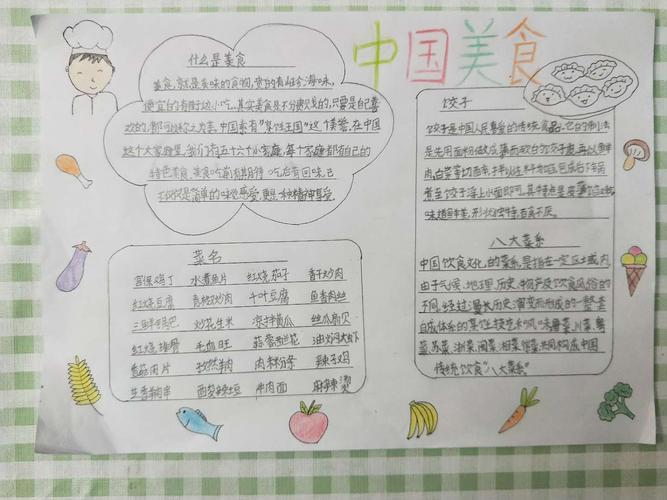 中国美食
什么是美食
美食,就是美味的食物,贵的有山珍海味,
便宜的有街边小吃。其实美食是不分贵贱的,只要是自己喜
欢的,都可以称之为美食。中国素有"烹饪王国"这个美誉,在中国
这个大家庭里,我们有五十六个小家庭,每个家庭都有自己的
特色美食。美食吃前有期待,吃后有回味,已
不仅仅是简单的味觉感受,更是一种精神享受。
饺子
饺子是中国人民喜爱的传统食品,它的制法
是先用面粉做成薄而软的饺子皮,再以鲜
肉、白菜等切碎,拌以佐料为馅,包后下锅
煮至饺子浮上水面即可。其特点是皮薄馅嫩,
味道鲜美,形状独特,百食不厌。
八大菜系
中国饮食文化的菜系,是指在一定区域内,
由于气候、地理、历史、物产及饮食风俗的
不同,经过漫长历史演变而形成的一整套
自成体系的烹饪技艺和风味,鲁菜、川菜、粤
菜、苏菜、浙菜、闽菜、湘菜、徽菜共同构成中国
传统饮食"八大菜系"
菜名
宫保鸡丁 水煮鱼片 红烧茄子 香干炒肉
红烧豆腐 青椒炒肉 千叶豆腐 鱼香肉丝
炒花生米 凉拌黄瓜 丝瓜扇贝
红烧排骨 毛血旺 蒜蓉西兰花 油焖大虾
孜然羊肉 肉末粉条 辣子鸡
牛肉面 麻辣烫